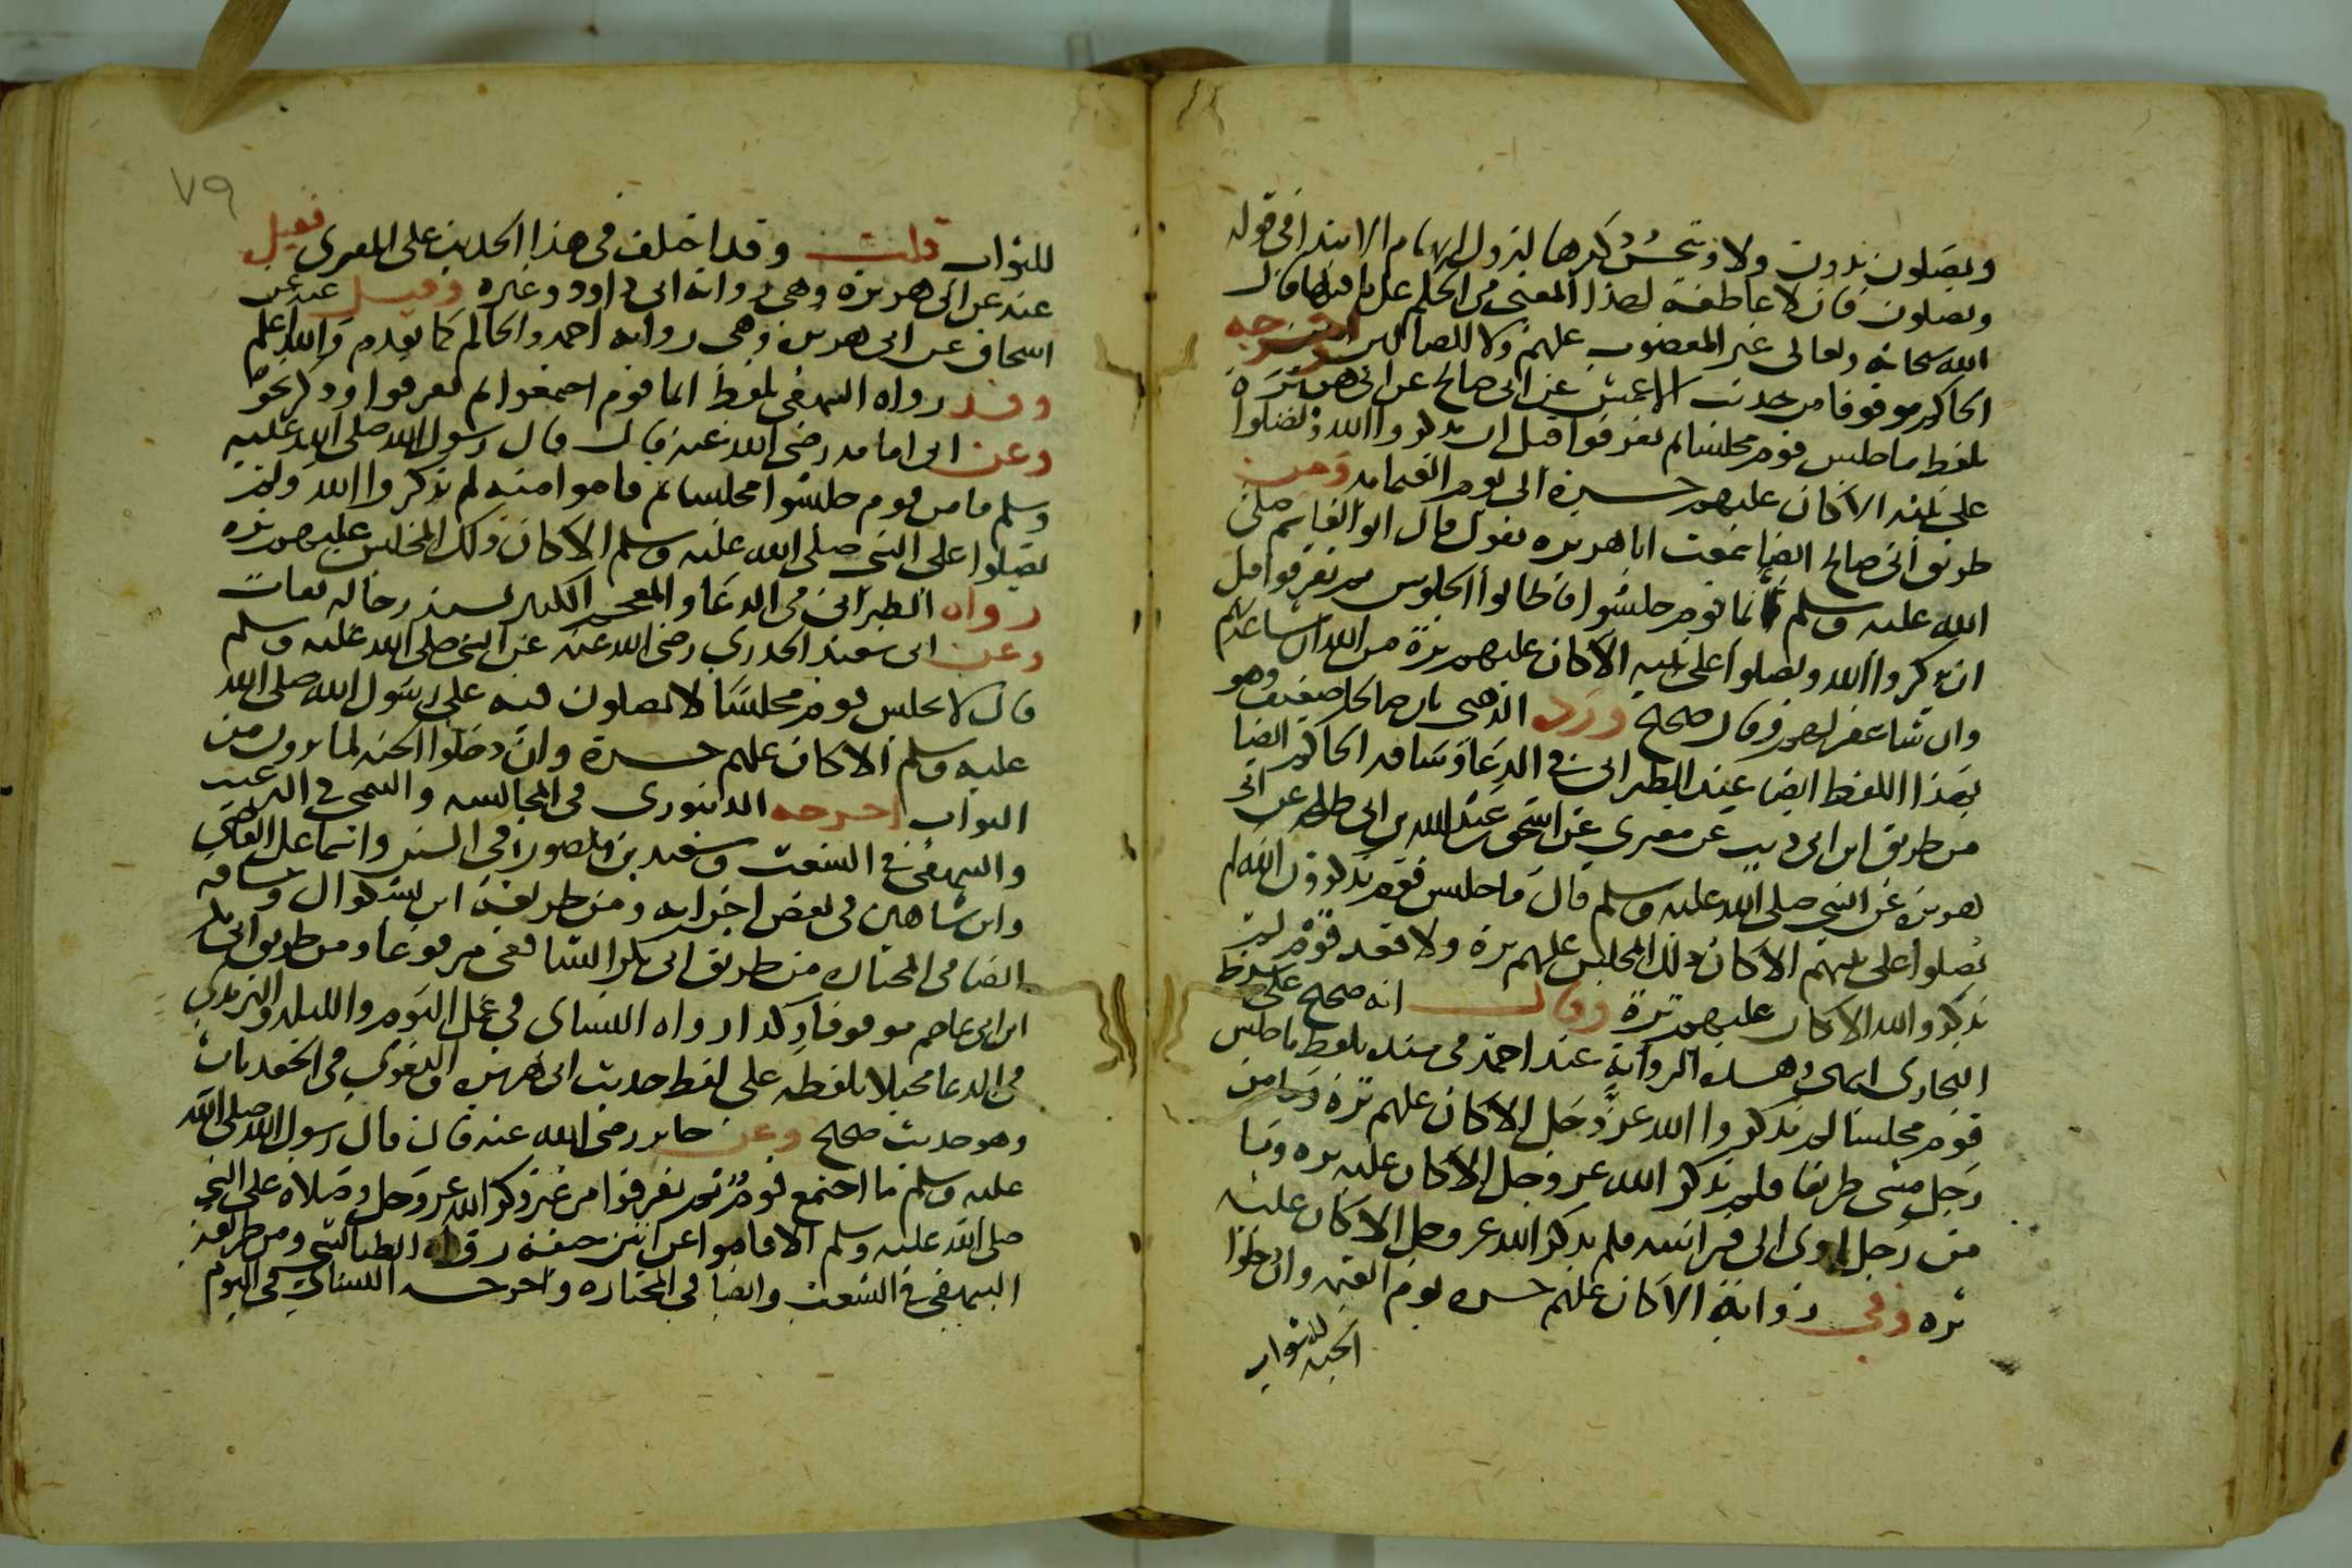 ويصلون بدون ولا ويحسن ذكرها لنزول ابهام الابتدا في قوله
ويصلون فان لا عاطفة لهذا المعنى من الحكم على ما قبلها قال
الله سبحانه وتعالى غير المغضوب عليهم ولا الضالين واخرجه
الحاكم موقوفا من حديث الاعمش عن ابي صالح عن ابي هريرة
بلفظ ما جلس قوم مجلسا لم تفرقوا قبل ان يذكروا الله ويصلوا
على نبيه الا كان عليهم حسرة الى يوم القيامه ومن
طريق ابي صالح ايضا سمعت ابا هريره يقول قال ابو القاسم صلى
الله عليه وسلم ايما قوم جلسوا فاطالوا الجلوس ثم تفرقوا قبل
ان يذكروا الله ويصلوا على نبيه الا كان عليهم ترة من الله ان شا عذبهم
وان شا غفر لهم وقال صحيح ورد الذهبي بان صالحا ضعيف وهو
بهذا اللفظ ايضا عند الطبراني في الدعا وساقه الحاكم ايضا
من طريق ابن ابي ذيب عن مقبري عن اسحق عبد الله بن ابي طلحه عن ابي
هريره عن النبي صلى الله عليه وسلم قال ما جلس قوم يذكرون الله لم
يصلوا على نبيهم الا كان ذلك المجلس عليهم ترة ولا قعد قوم لم
يذكروا الله الا كان عليهم ترة وقال انه صحيح على شرط
البخاري انتهى وهذه الرواية عند احمد في مسنده بلفظ ما جلس
قوم مجلسا لم يذكروا الله عز وجل الا كان عليهم ترة وما من
رجل مشى طريقا فلم يذكر الله عز وجل الا كان عليه تره وما
من رجل اوى الى فراشه فلم يذكر الله عز وجل الا كان عليه
تره وفي رواية الا كان عليهم حسره يوم القيمه وان دخلوا
الجنه للثواب
٧٩
للثواب قلت وقد اختلف في هذا الحديث على المقبري فقيل
عنه عن ابي هريرة وهي رواية ابي داود وغيره وقيل عنه عن
اسحاق عن ابي هريرة وهي رواية احمد والحاكم كما تقدم والله اعلم
وقد رواه البيهقي بلفظ ايما قوم اجتمعوا ثم تفرقوا وذكر نحوه
وعن ابي امامه رضي الله عنه قال قال رسول الله صلى الله عليه
وسلم ما من قوم جلسوا مجلسا ثم قاموا منه لم يذكروا الله ولم
يصلوا على النبي صلى الله عليه وسلم الا كان ذلك المجلس عليهم تره
رواه الطبراني في الدعا والمعجم الكبير بسند رجاله ثقات
وعن ابي سعيد الخدري رضي الله عنه عن النبي صلى الله عليه وسلم
قال لا يجلس قوم مجلسا لا يصلون فيه على رسول الله صلى الله
عليه وسلم الا كان عليهم حسرة وان دخلوا الجنه لما يرون من
الثواب اخرجه الدينوري في المجالسه والتيمي في الترغيب
والبيهقي في الشعب وسعيد بن منصور في السنن واسماعيل القاضي
وابن شاهين في بعض اجزايه ومن طريقه ابن بشكوال وساقه
الضيا في المختاره من طريق ابي بكر الشافعي مرفوعا ومن طريق ابي بكر
ابن ابي عاصم موقوفا وكذا رواه النساي في عمل اليوم والليله والترمذي
في الدعا محيلا بلفظه على لفظ حديث ابي هريره والبغوي في الجعديات
وهو حديث صحيح وعن جابر رضي الله عنه قال قال رسول الله صلى الله
عليه وسلم ما اجتمع قوم ثم تفرقوا من غير ذكر الله عز وجل وصلاة على النبي
صلى الله عليه وسلم الا قاموا عن انتن جيفة رواه الطيالسي ومن طريقه
البيهقي في الشعب والضيا في المختاره واخرجه النساي في اليوم